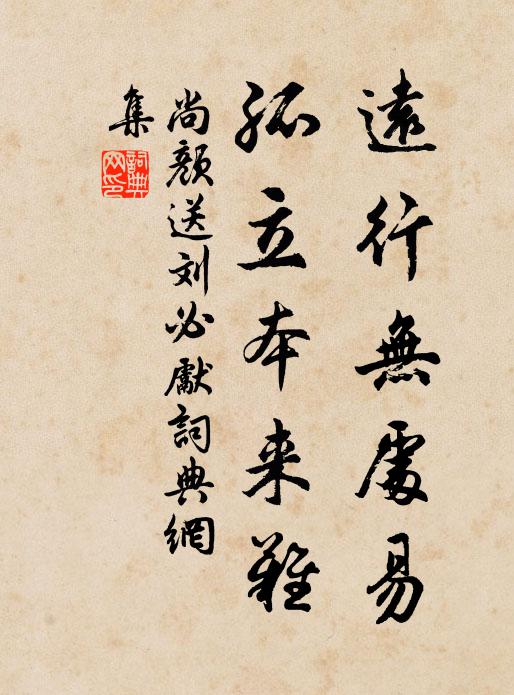 遠行無處易
孤立本来難
尚顔送刘必獻詞典網
集
詞典网印